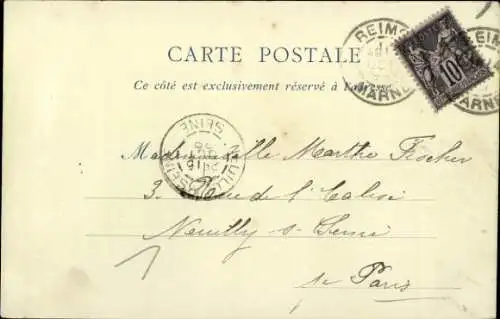 REIMS
MARNE
REIMS
MARNE
10
CARTE POSTALE
Ce côté est exclusivement réservé à l'adresse
SEINE
NEUILLY
Mademoiselle Marthe Fischer
3, Rue de l'
Neuilly s. Seine
Paris